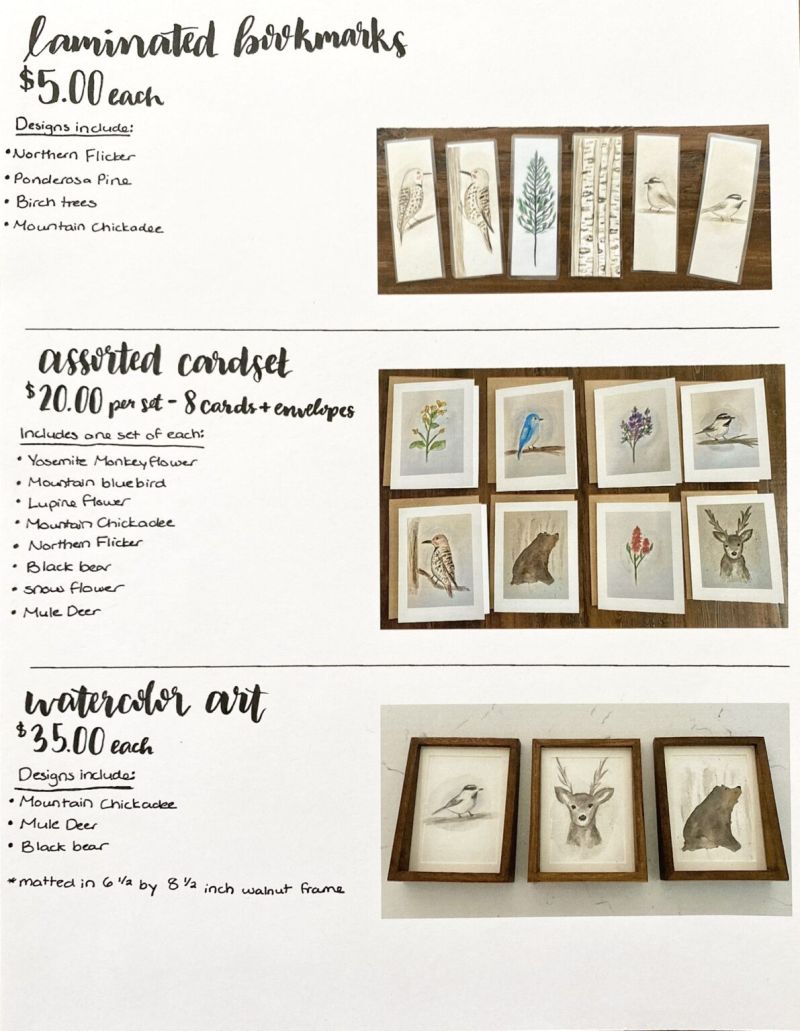 laminated bookmarks
$5.00 each
Designs include:
• Northern Flicker
• Ponderosa Pine
• Birch trees
• Mountain Chickadee
assorted cardset
$20.00 per set - 8 cards + envelopes
Includes one set of each:
• Yosemite Monkeyflower
• Mountain bluebird
• Lupine flower
• Mountain Chickadee
• Northern Flicker
• Black bear
• snow flower
• Mule Deer
watercolor art
$35.00 each
Designs include:
• Mountain Chickadee
• Mule Deer
• Black bear
*matted in 6 1/2 by 8 1/2 inch walnut frame